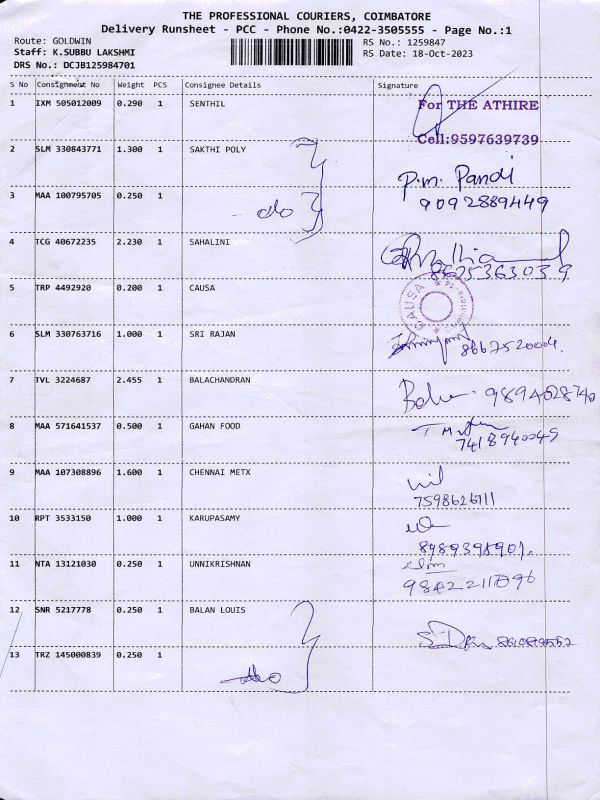 THE PROFESSIONAL COURIERS, COIMBATORE
Delivery Runsheet - PCC - Phone No.:0422-3505555 - Page No.:1
Route: GOLDWIN RS No.: 1259847
Staff: K.SUBBU LAKSHMI RS Date: 18-Oct-2023
DRS No.: DCJB125984701
S No Consignment No Weight PCS Consignee Details Signature
1 IXM 505012009 0.290 1 SENTHIL For THE ATHIRE
Cell:9597639739
2 SLM 330843771 1.300 1 SAKTHI POLY P.M. Pandi
9092889449
3 MAA 100795705 0.250 1 - do
4 TCG 40672235 2.230 1 SAHALINI
8625363039
5 TRP 4492920 0.200 1 CAUSA CAUSA
6 SLM 330763716 1.000 1 SRI RAJAN
866752000
7 TVL 3224687 2.455 1 BALACHANDRAN
8 MAA 571641537 0.500 1 GAHAN FOOD
7418940049
9 MAA 107308896 1.600 1 CHENNAI METX
7598626111
10 RPT 3533150 1.000 1 KARUPASAMY
11 NTA 13121030 0.250 1 UNNIKRISHNAN
9842211096
12 SNR 5217778 0.250 1 BALAN LOUIS
13 TRZ 145000839 0.250 1 do